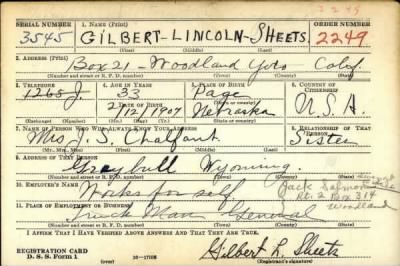 2249
SERIAL NUMBER 1. NAME (Print) ORDER NUMBER
3545 GILBERT-LINCOLN-SHEETS 2249
(First) (Middle) (Last)
2. ADDRESS (Print)
Box 21-Woodland Yolo Calif.
(Number and street or R. F. D. number) (Town) (County) (State)
3. TELEPHONE 4. AGE IN YEARS 5. PLACE OF BIRTH 6. COUNTRY OF CITIZENSHIP
1265 J. 33 Page
DATE OF BIRTH (Town or county)
2/12/1907 Nebraska U.S.A.
(Exchange) (Number) (Mo.) (Day) (Yr.) (State or country)
7. NAME OF PERSON WHO WILL ALWAYS KNOW YOUR ADDRESS 8. RELATIONSHIP OF THAT PERSON
Mrs J. S. Chalfant Sister
(Mr., Mrs., Miss) (First) (Middle) (Last)
9. ADDRESS OF THAT PERSON
Greybull Wyoming.
(Number and street or R. F. D. number) (Town) (County) (State)
10. EMPLOYER'S NAME
Works for self. Jack Salmon
Rt. 2 Box 314
Woodland
11. PLACE OF EMPLOYMENT OR BUSINESS
Truck Man General
(Number and street or R. F. D. number) (Town) (County) (State)
I AFFIRM THAT I HAVE VERIFIED ABOVE ANSWERS AND THAT THEY ARE TRUE.
REGISTRATION CARD
D. S. S. Form 1 Gilbert L Sheets
(Registrant's signature)